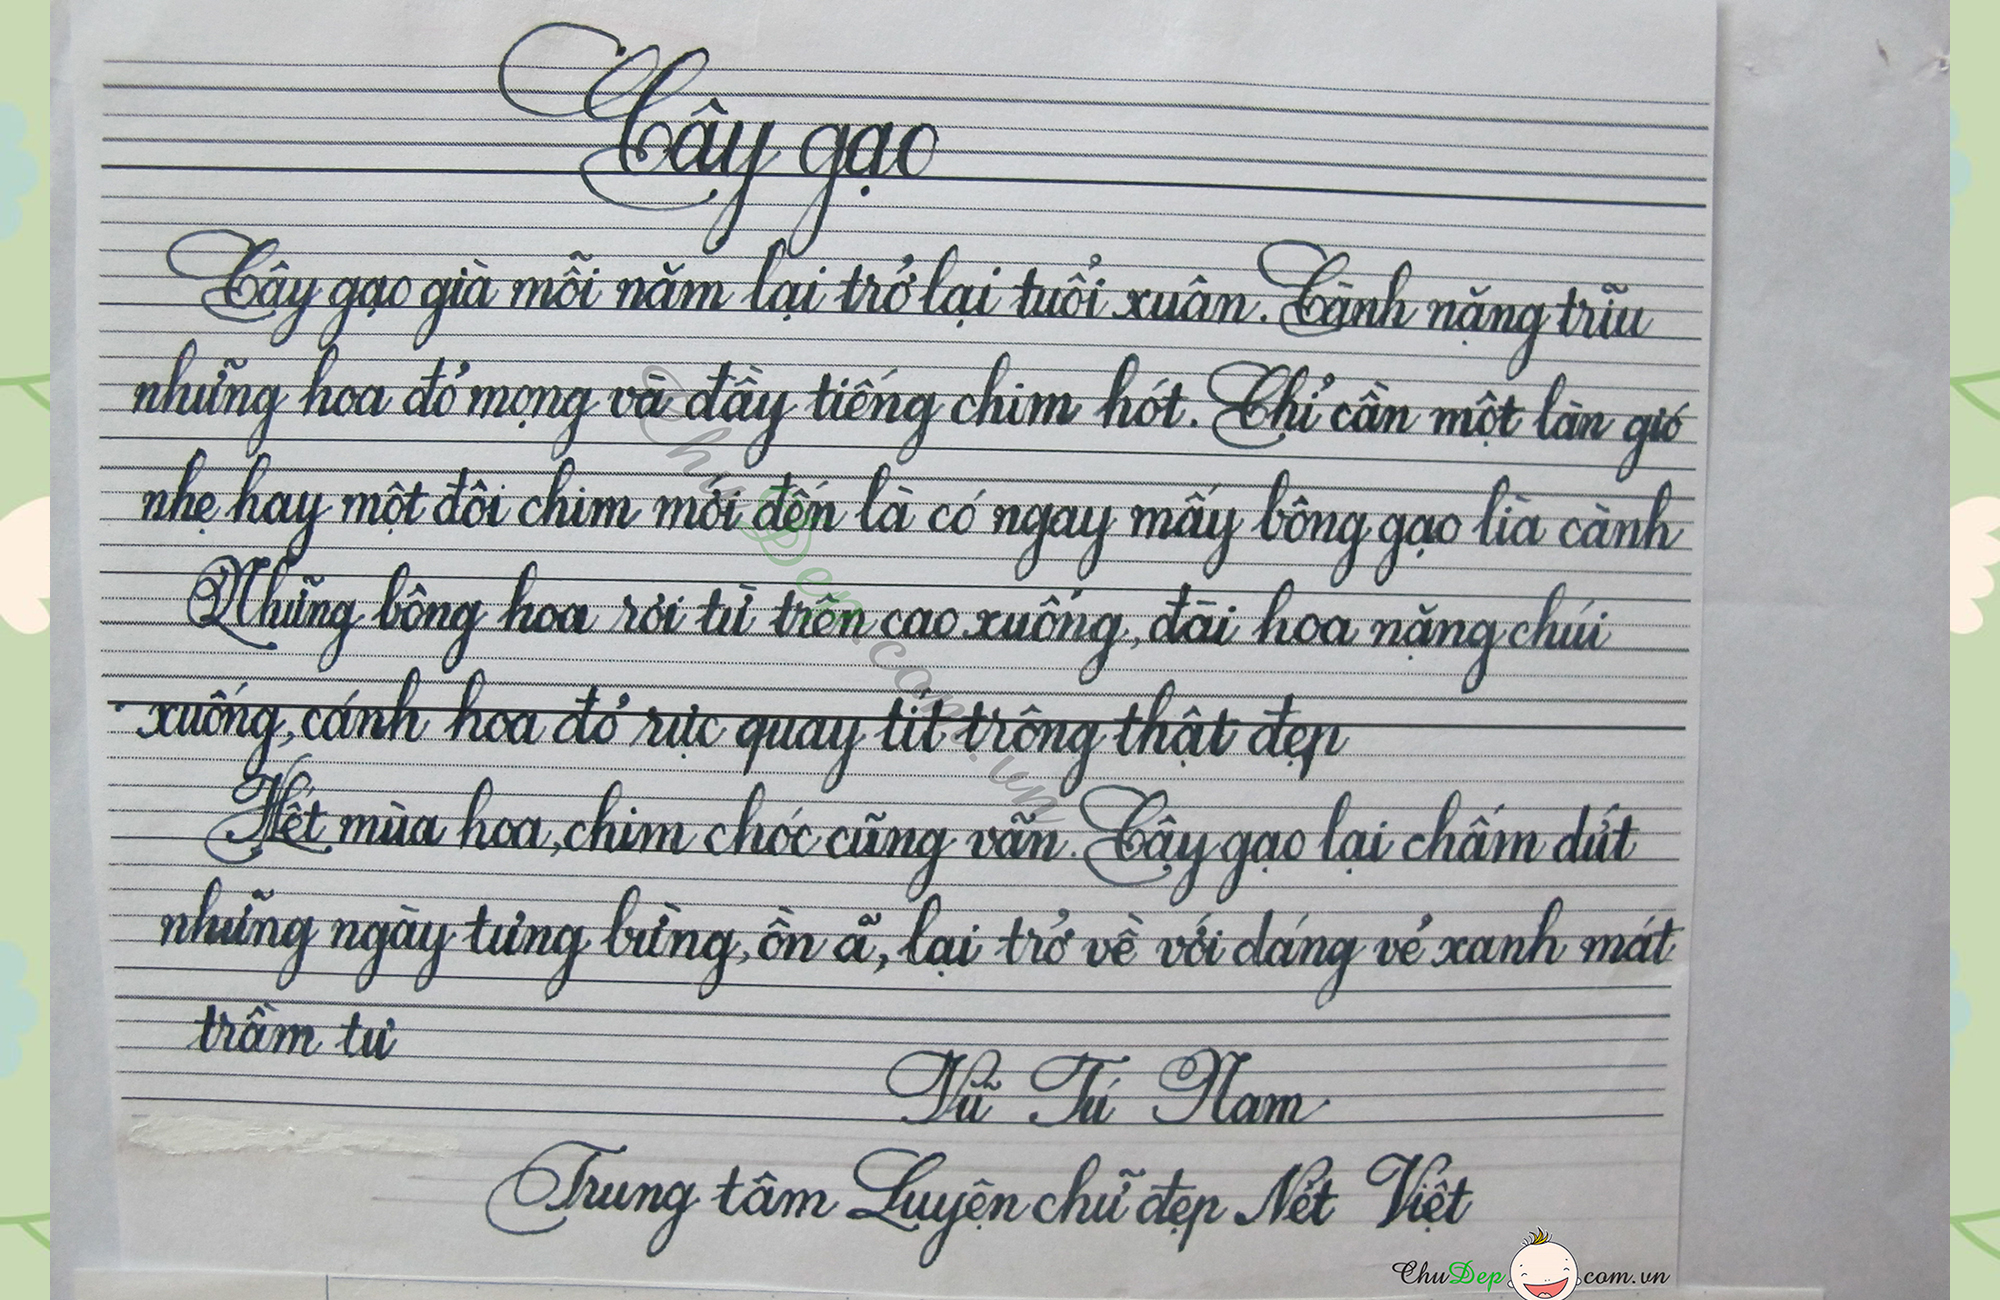 Cây gạo
Cây gạo già mỗi năm lại trở lại tuổi xuân. Cành nặng trĩu
những hoa đỏ mọng và đầy tiếng chim hót. Chỉ cần một làn gió
nhẹ hay một đôi chim mới đến là có ngay mấy bông gạo lìa cành
Những bông hoa rơi từ trên cao xuống, đài hoa nặng chúi
xuống, cánh hoa đỏ rực quay tít trông thật đẹp
Hết mùa hoa, chim chóc cũng vãn. Cây gạo lại chấm dứt
những ngày tưng bừng, ồn ã, lại trở về với dáng vẻ xanh mát
trầm tư
Vũ Tú Nam
Trung tâm Luyện chữ đẹp Nét Việt
ChuDep.com.vn
ChuDep.com.vn